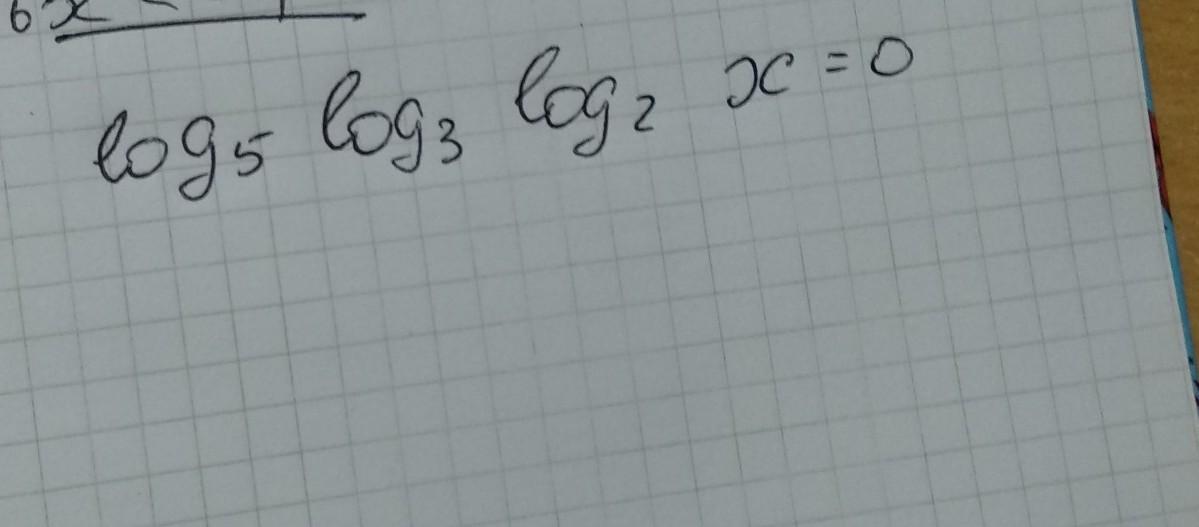 log₅ log₃ log₂ x = 0